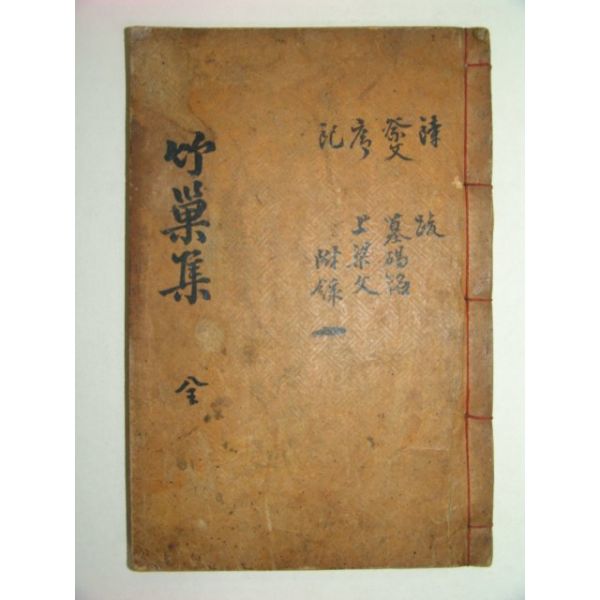 詩 跋
祭文 墓碣銘
序 上梁文
記 附錄 一
竹巢集 全